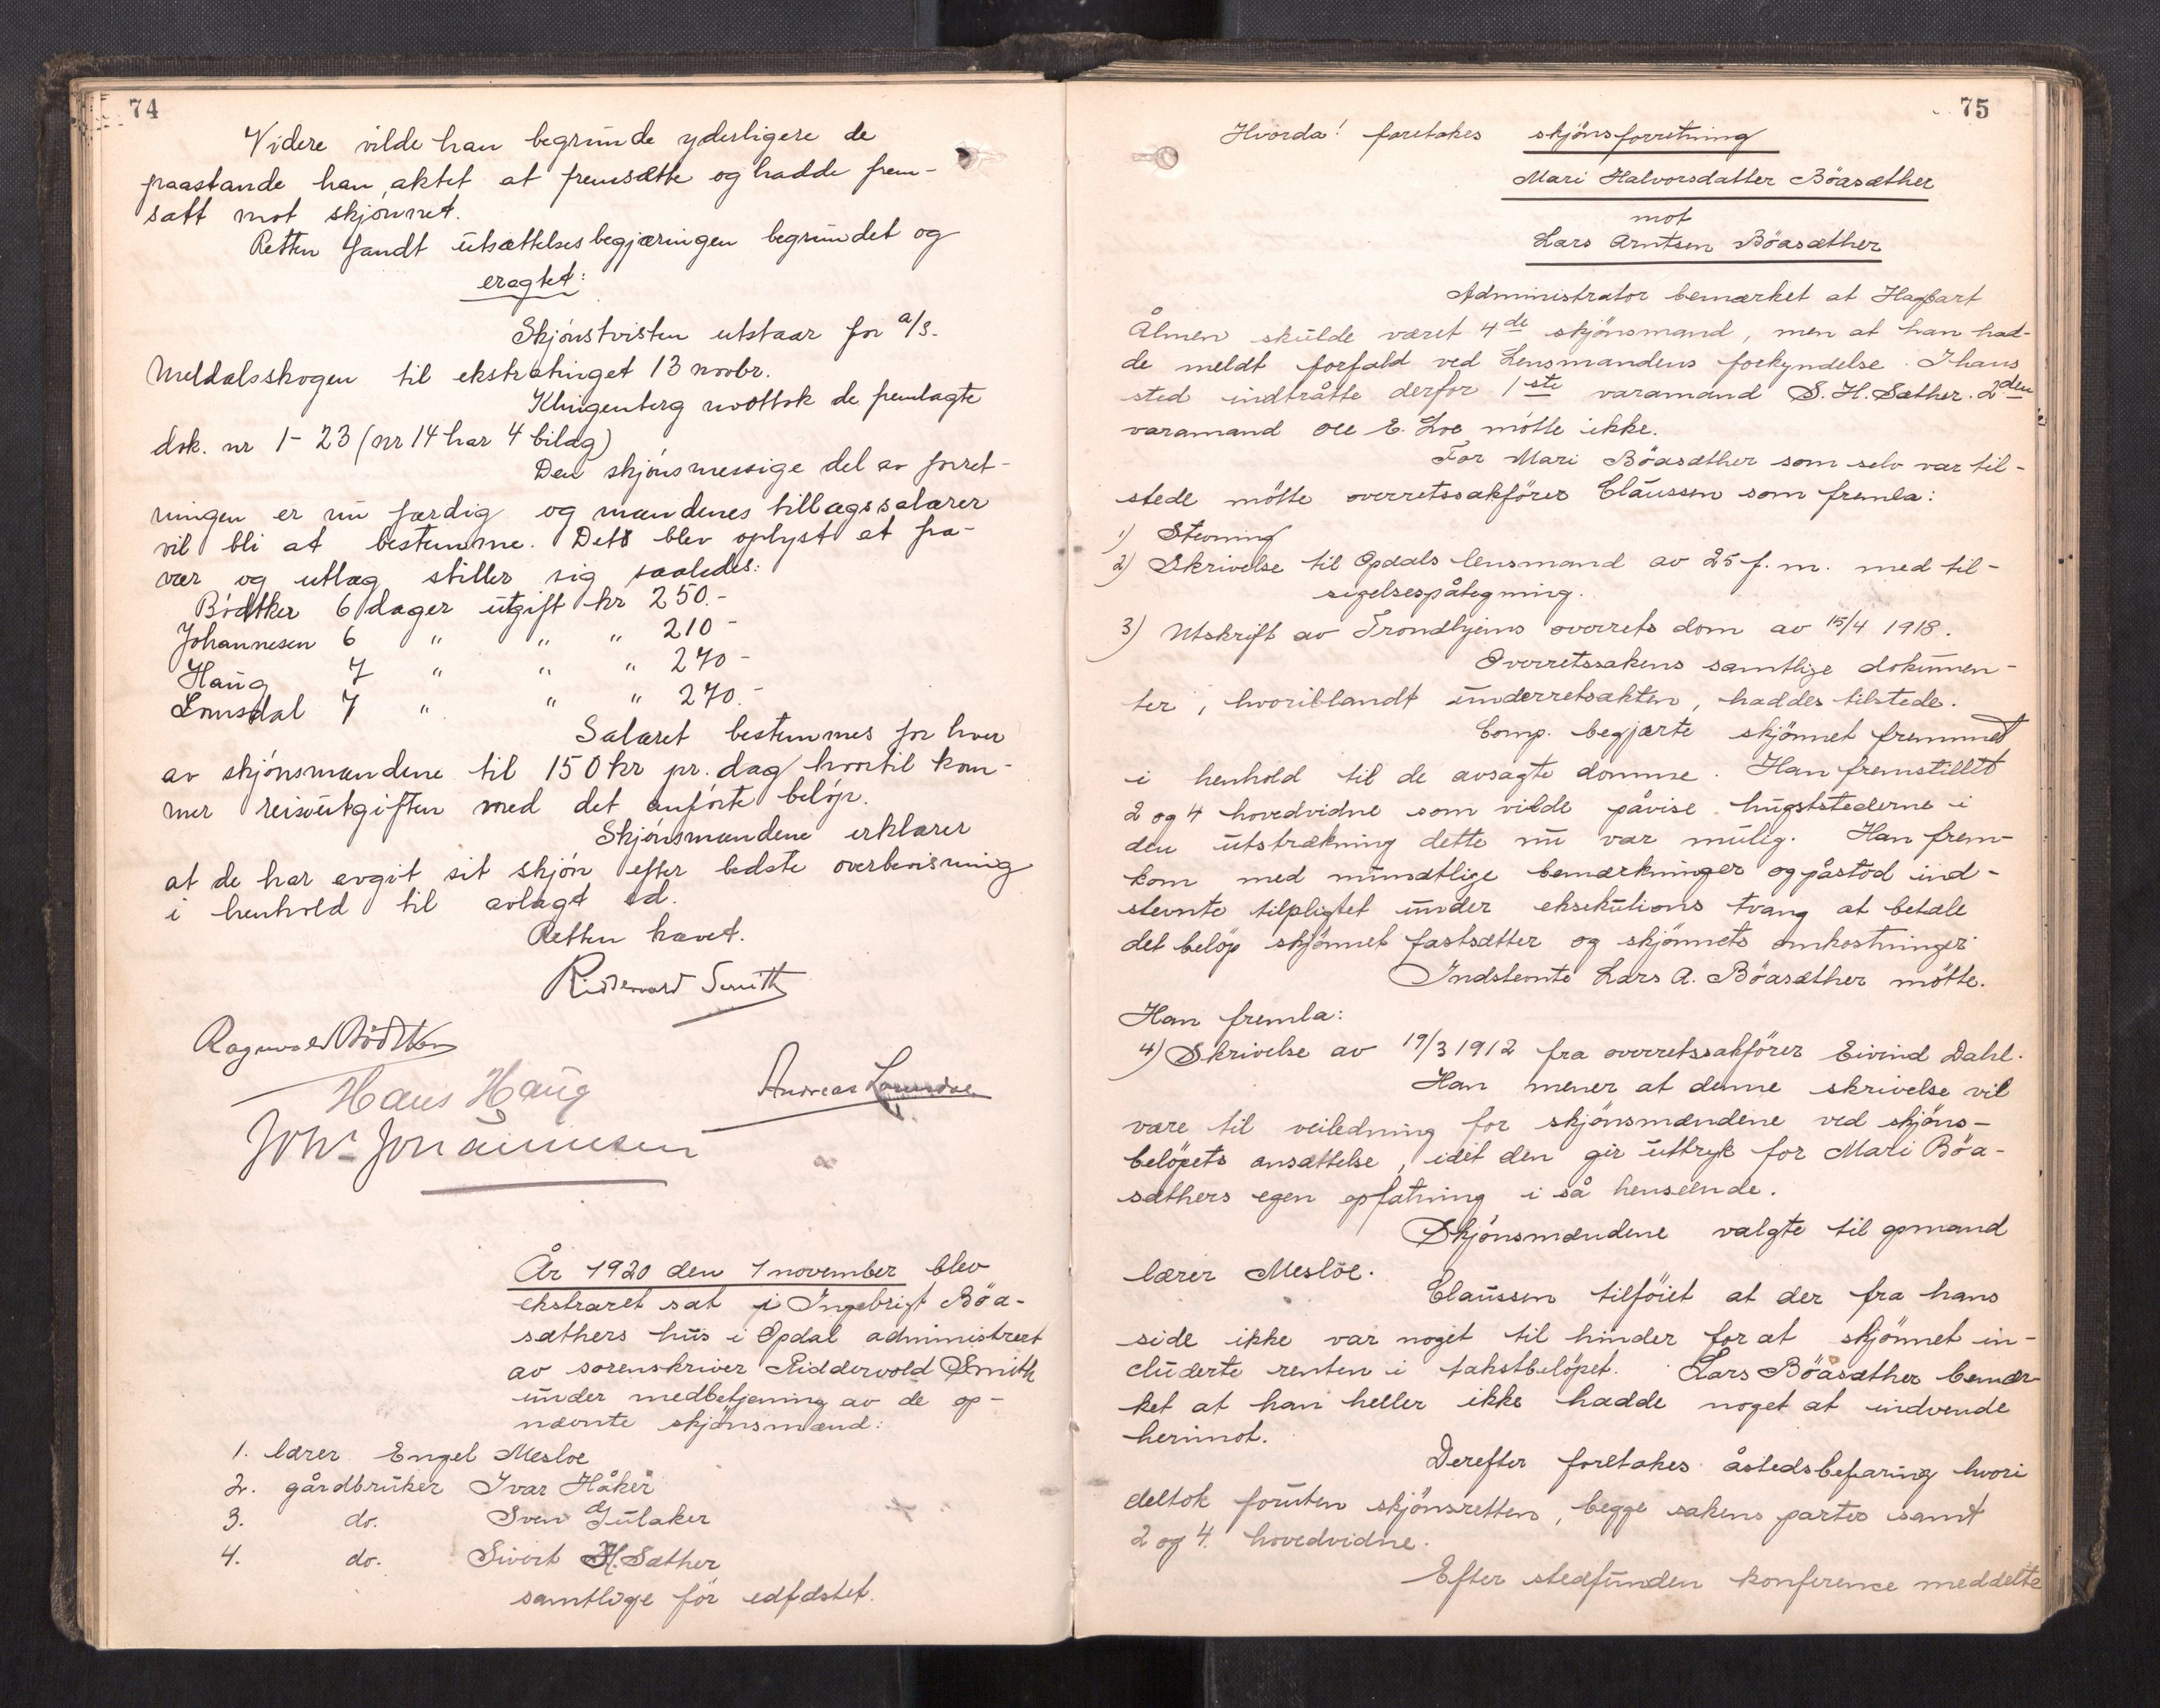 74
Videre vilde han begrunde yderligere de
paastande han aktet at fremsætte og hadde frem-
satt mot skjønnet.
Retten fandt utsættelsesbegjæringen begrundet og
eragtet:
Skjønstvisten utstaar for a/s.
Meldalsskogen til ekstratinget 13 novbr.
Klingenberg mottok de fremlagte
dok. nr 1-23 (nr 14 har 4 bilag)
Den skjönsmessige del av forret-
ningen er nu færdig og mændenes tillægssalærer
vil bli at bestemme. Det blev oplyst at fra-
vær og utlæg stiller sig saaledes:
Bödtker 6 dager utgift kr 250.-
Johannesen 6 " " " 210-
Haug 7 " " " 270-
Lomsdal 7 " " " 270.-
Salæret bestemmes for hver
av skjönsmændene til 150 kr pr. dag hvortil kom-
mer reiseutgiften med det anførte beløp.
Skjönsmændene erklærer
at de har avgit sit skjön efter bedste overbevisning
i henhold til avlagt ed.
Retten hævet.
Riddervold Smith
Ragnvald Bödtker
Hans Haug
Andreas Lomsdal
Johs Johannesen
År 1920 den 1 november blev
ekstraret sat i Ingebrigt Böa-
sæthers hus i Opdal administrert
av sorenskriver Riddervold Smith
under medbetjening av de op-
nævnte skjönsmænd:
1. lærer Engel Mesloe
2. gårdbruker Ivar Håker
3. do. Sven Gulaker
4. do. Sivert H. Sæther
samtlige før edfæstet.
75
Hvorda! foretokes skjönsforretning
Mari Halvorsdatter Böasæther
mot
Lars Arntsen Böasæther
Administrator bemærket at Hagbart
Ålmen skulde været 4de skjönsmand, men at han had-
de meldt forfald ved Lensmandens forkyndelse. I hans
sted indtråtte derfor 1ste varamand S. H. Sæther. 2den
varamand Ole E. Loe mötte ikke.
For Mari Böasæther som selv var til-
stede mötte overretssakförer Claussen som fremla:
1) Stevning
2) Skrivelse til Opdals lensmand av 25 f.m. med til-
sigelsespåtegning.
3) Utskrift av Trondhjems overrets dom av 15/4 1918.
Overretssakens samtlige dokumen-
ter, hvoriblandt underretsakten, haddes tilstede.
Comp. begjærte skjönnet fremmet
i henhold til de avsagte domme. Han fremstillet
2 og 4 hovedvidne som vilde påvise hugststederne i
den utstrækning dette nu var mulig. Han frem-
kom med mundtlige bemærkninger og påstod ind-
stevnte tilpligtet under eksekutions tvang at betale
det belöp skjönnet fastsætter og skjönnets omkostninger.
Indstevnte Lars A. Böasæther mötte.
Han fremla:
4) Skrivelse av 19/3 1912 fra overretssakförer Eivind Dahl.
Han mener at denne skrivelse vil
være til veiledning for skjönsmændene ved skjöns-
belöpets ansættelse, idet den gir uttryk for Mari Böa-
sæthers egen opfatning i så henseende.
Skjönsmændene valgte til opmand
lærer Mesloe.
Claussen tilföiet at der fra hans
side ikke var noget til hinder for at skjönnet in-
cluderte renten i takstbelöpet. Lars Böasæther bemær-
ket at han heller ikke hadde noget at indvende
herimot.
Derefter foretokes åstedsbefaring hvori
deltok foruten skjönsretten, begge sakens parter samt
2 og 4. hovedvidne.
Efter stedfunden konference meddelte